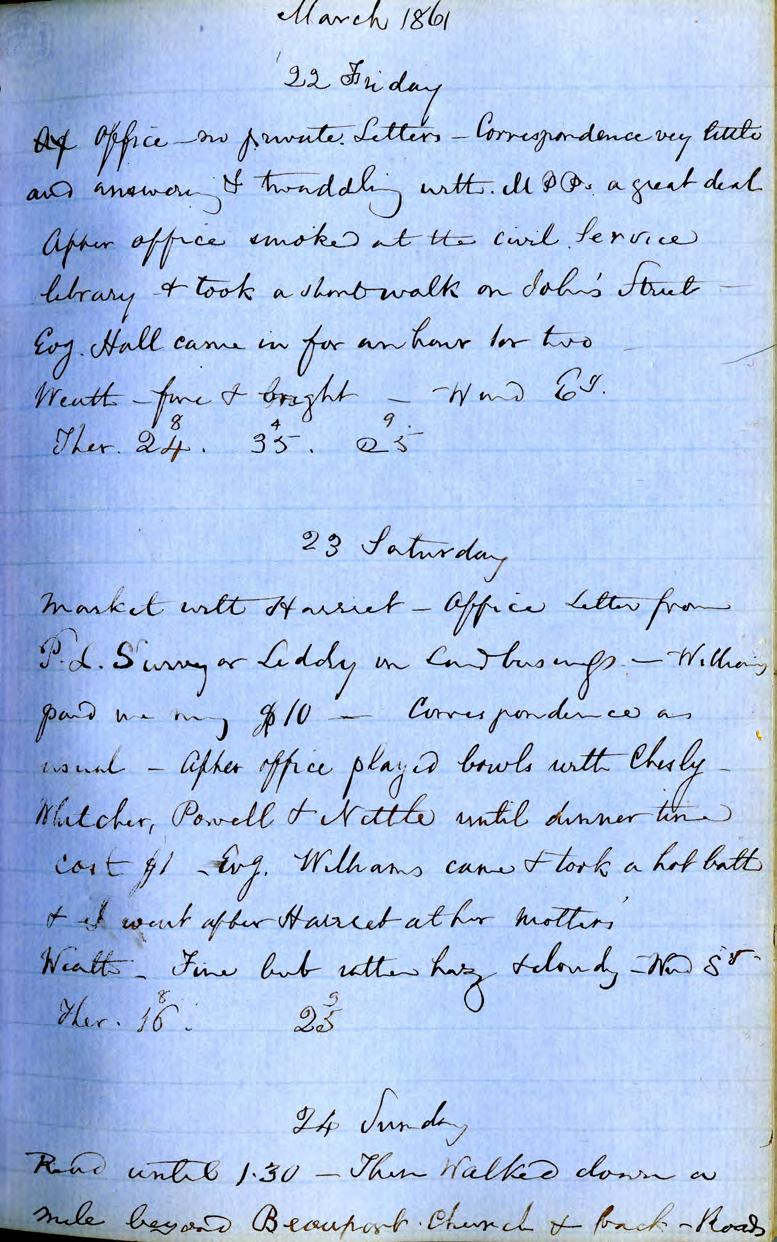 March 1861
22 Friday
At Office - no private Letters - Correspondence vey little
and answering & twaddling with M P Ps a great deal
After office smoked at the civil Service
library & took a short walk on John's Street -
Evg. Hall came in for an hour or two
Weath - fine & bright - Wind Ey.
8 4 9
Ther. 24. 35. 25
23 Saturday
Market with Harriet - Office Letter from
P. L. Surveyor Leddy on Land business - Williams
paid me my $10 - Correspondence as
usual - After office played bowls with Chesly -
Whitcher, Powell & Nettle until dinner time
cost $1 - Evg. Williams came & took a hot bath
& I went after Harriet at her mothers'
Weath - Fine but rather hazy & cloudy - Wind Sy -
8 9
Ther. 16. 25
24 Sunday
Read until 1.30 - Then Walked down a
mile beyond Beauport Church & back - Roads